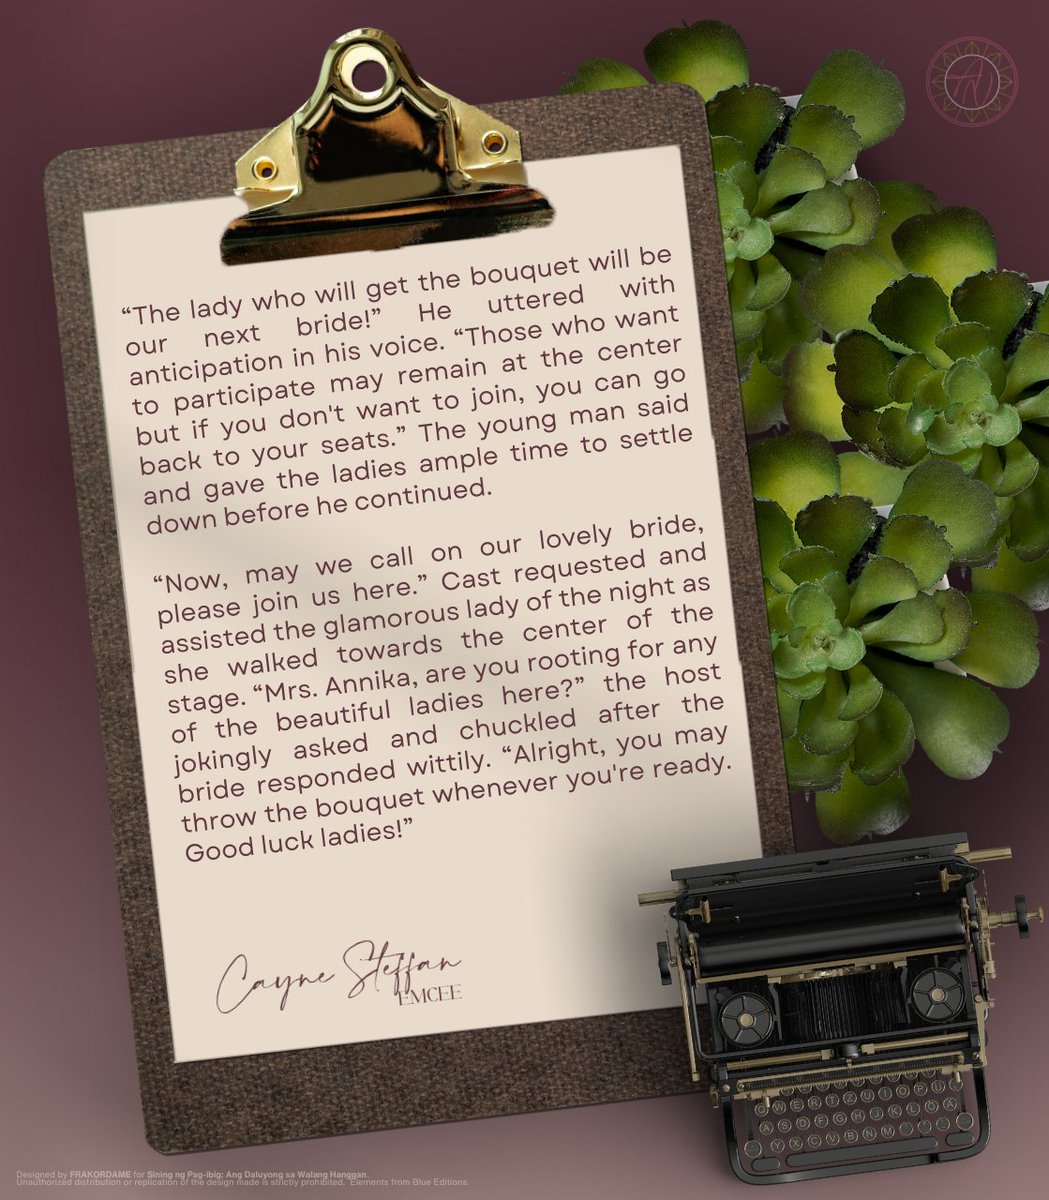 “The lady who will get the bouquet will be
our next bride!” He uttered with
anticipation in his voice. “Those who want
to participate may remain at the center
but if you don't want to join, you can go
back to your seats.” The young man said
and gave the ladies ample time to settle
down before he continued.
“Now, may we call on our lovely bride,
please join us here.” Cast requested and
assisted the glamorous lady of the night as
she walked towards the center of the
stage. “Mrs. Annika, are you rooting for any
of the beautiful ladies here?” the host
jokingly asked and chuckled after the
bride responded wittily. “Alright, you may
throw the bouquet whenever you're ready.
Good luck ladies!”
Cayne Steffan
EMCEE
Q W E R T Z U I O P Ü
A S D F G H J K L Ö Ä
Y X C V B N M
Designed by FRAKORDAME for Sining ng Pag-ibig: Ang Daluyong sa Walang Hanggan.
Unauthorized distribution or replication of the design made is strictly prohibited. Elements from Blue Editions.